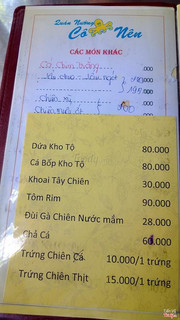 Quán Nướng
Cô Nên
CÁC MÓN KHÁC
.000
.000
Dứa Kho Tộ 80.000
Cá Bốp Kho Tộ 80.000
Khoai Tây Chiên 30.000
Tôm Rim 90.000
Đùi Gà Chiên Nước mắm 28.000
Chả Cá 60.000
Trứng Chiên Cà 10.000/1 trứng
Trứng Chiên Thịt 15.000/1 trứng